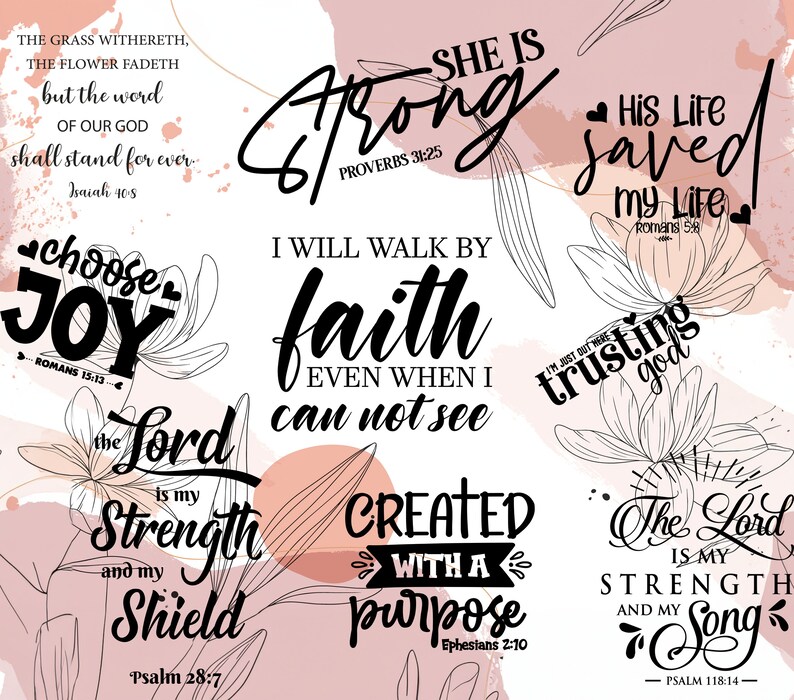 THE GRASS WITHERETH,
THE FLOWER FADETH
but the word
OF OUR GOD
shall stand for ever.
Isaiah 40:8
SHE IS
Strong
PROVERBS 31:25
HIS LIFE
saved
MY LIFE
ROMANS 5:8
choose
JOY
ROMANS 15:13
I WILL WALK BY
faith
EVEN WHEN I
can not see
I'M JUST OUT HERE
trusting
god
the Lord
is my
Strength
and my
Shield
Psalm 28:7
CREATED
WITH A
purpose
Ephesians 2:10
The Lord
IS MY
STRENGTH
AND MY Song
PSALM 118:14